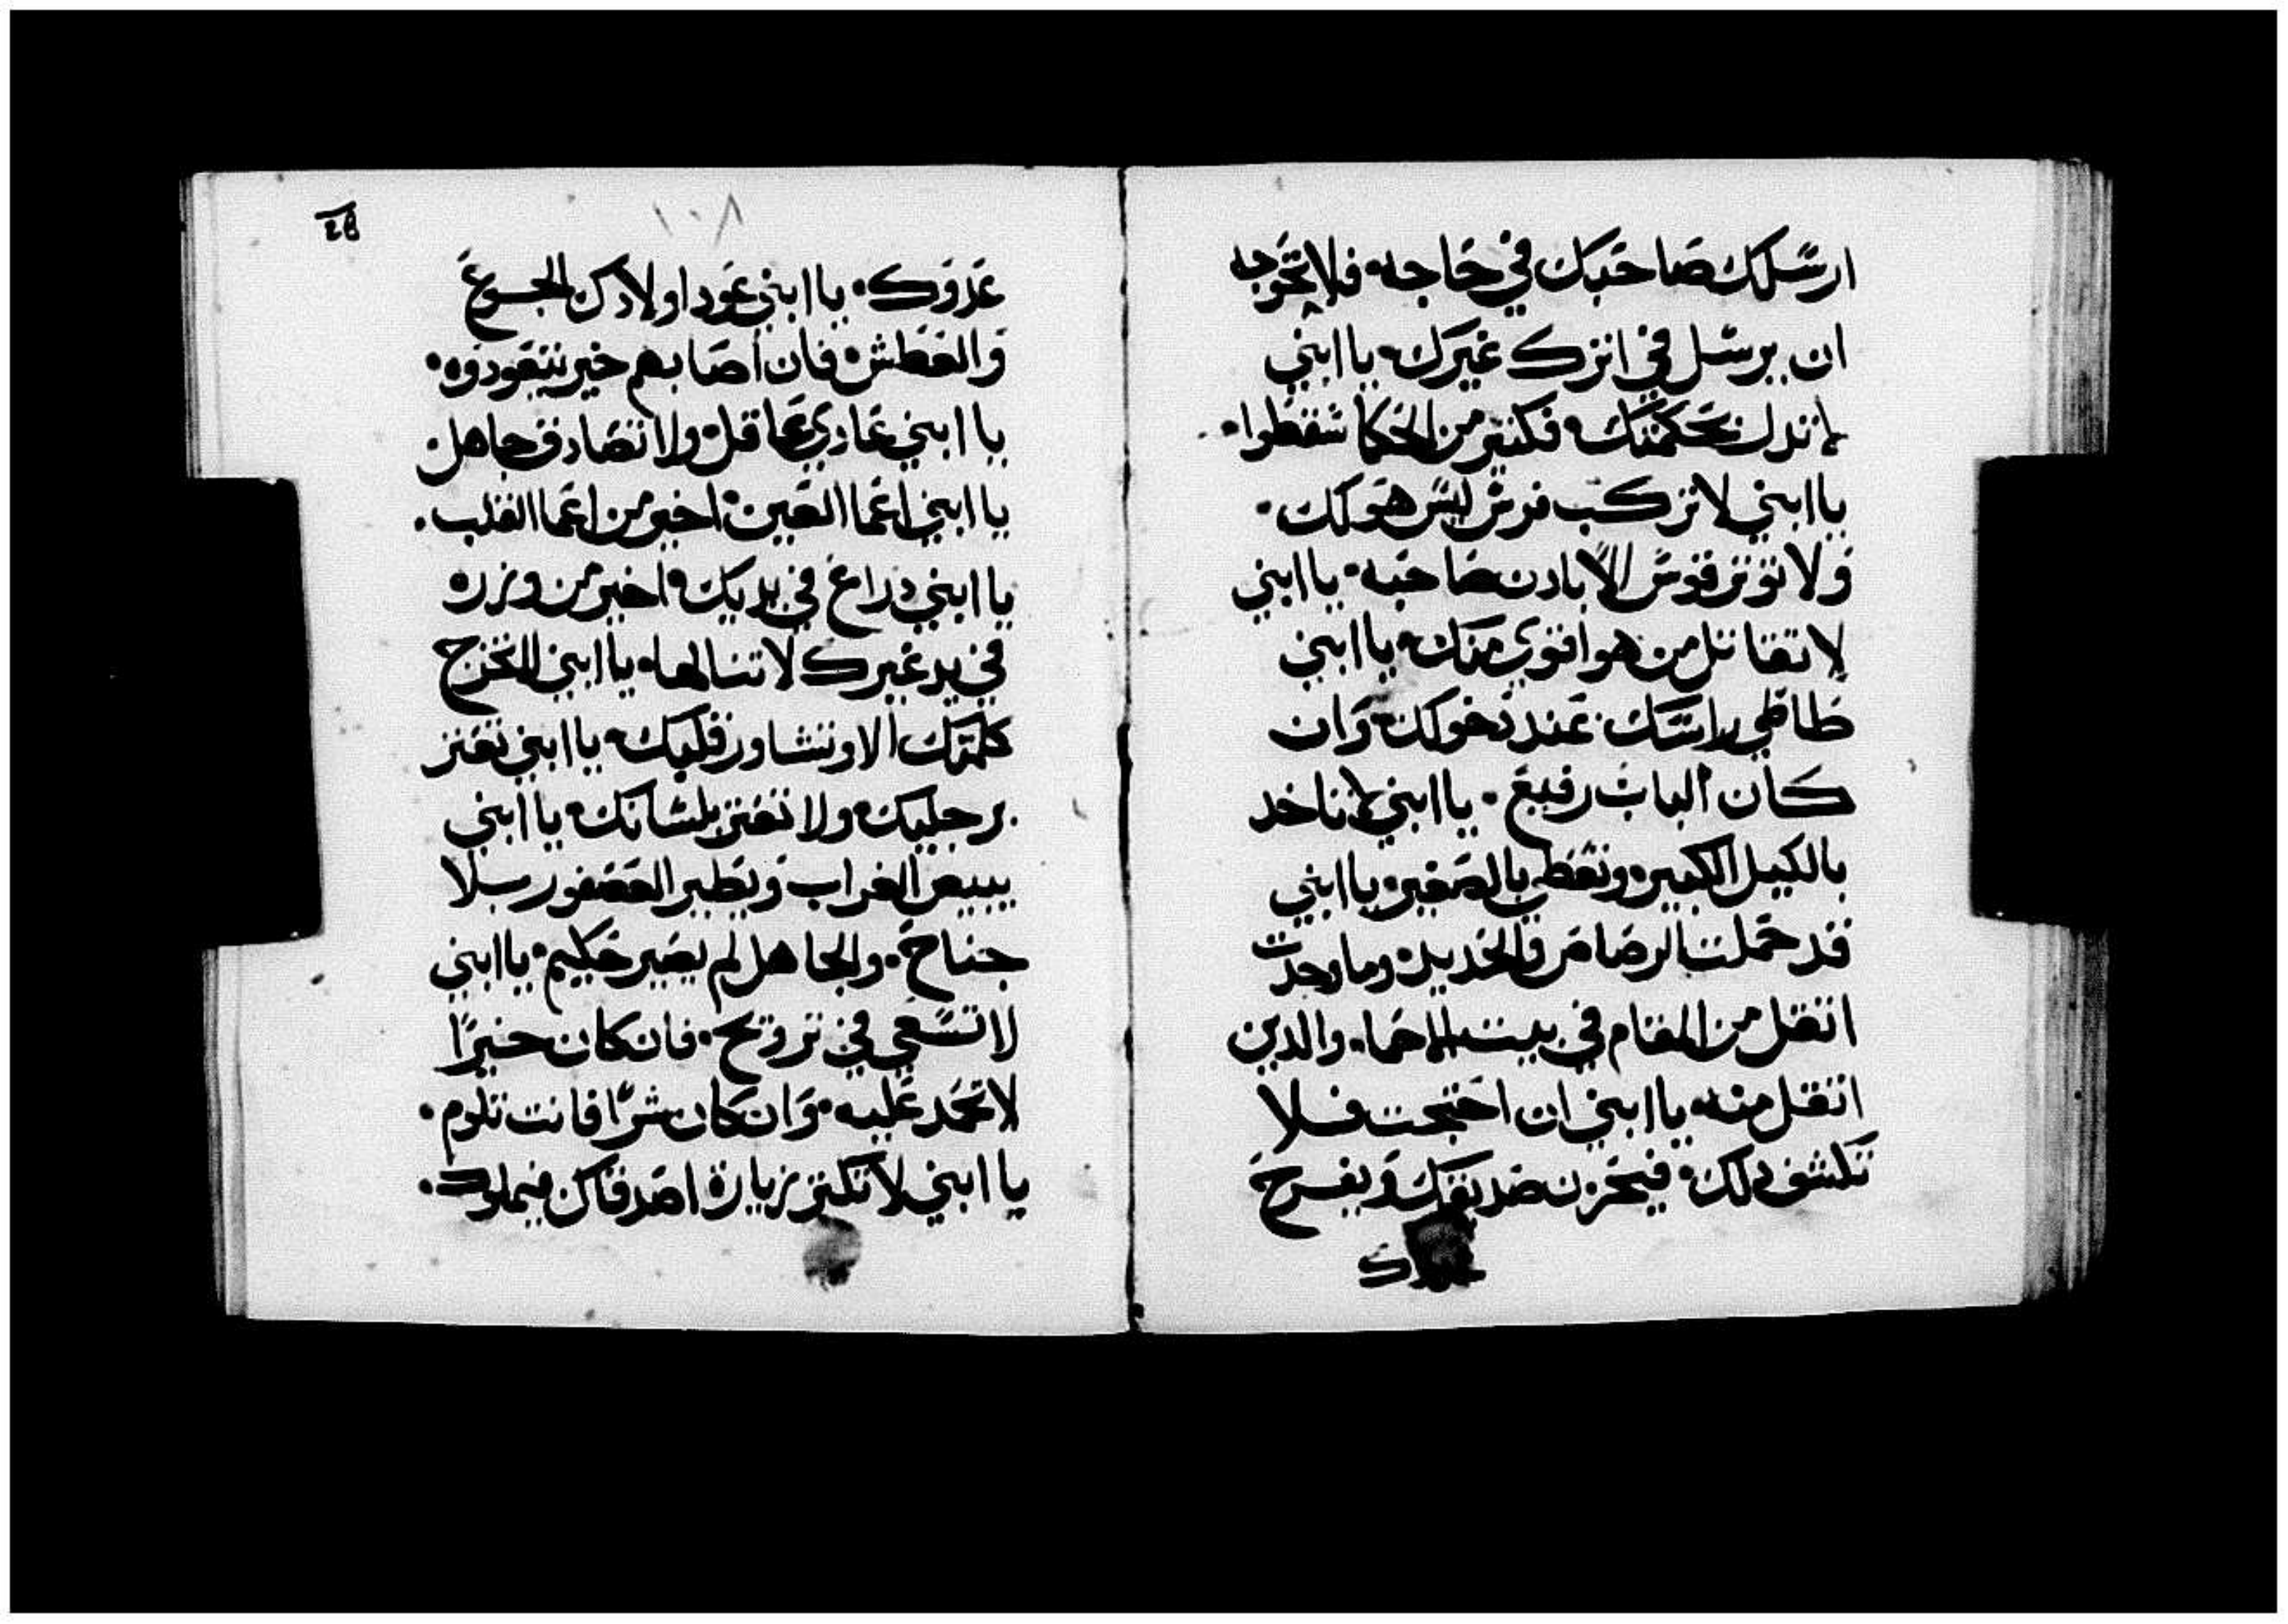 ارسلك صاحبك في حاجه فلا تحوجه
ان يرسل في اثرك غيرك يا ابني
لا تدل بحكمتك فكثير من الحكما سقطوا
يا ابني لا تركب فرس ليس هو لك
ولا توتر قوس الا بادن صاحبه يا ابني
لا تقاتل من هو اقوي منك يا ابني
طاطي راسك عند دخولك وان
كان الباب رفيع يا ابني لا تاخد
بالكيل الكبير وتعطي بالصغير يا ابني
قد حملت الرصاص والحديد وما وجدت
اتقل من المقام في بيت الاحما والدين
اتقل منه يا ابني ان احتجت فلا
تكشف دلك فيحزن صديقك ويفرح
28
١٠٨
عدوك يا ابني عود اولادك الجوع
والعطش فان اصابهم خير يتعودوه
يا ابني عادي عاقل ولا تصادق جاهل
يا ابني اعما العين اخير من اعما القلب
يا ابني دراع في يديك اخير من وزره
في يد غيرك لا تنالها يا ابني لا تخرج
كلمتك الا وتشاور قلبك يا ابني تعتر
برجليك ولا تعتر بلسانك يا ابني
يبيض الغراب ويطير العصفور بلا
جناح والجاهل لم يصير حكيم يا ابني
لا تسعي في تزويج فان كان خيرًا
لا تحمد عليه وان كان شرًا فانت تلوم
يا ابني لا تكتر زيارة اصدقاك فيملوك